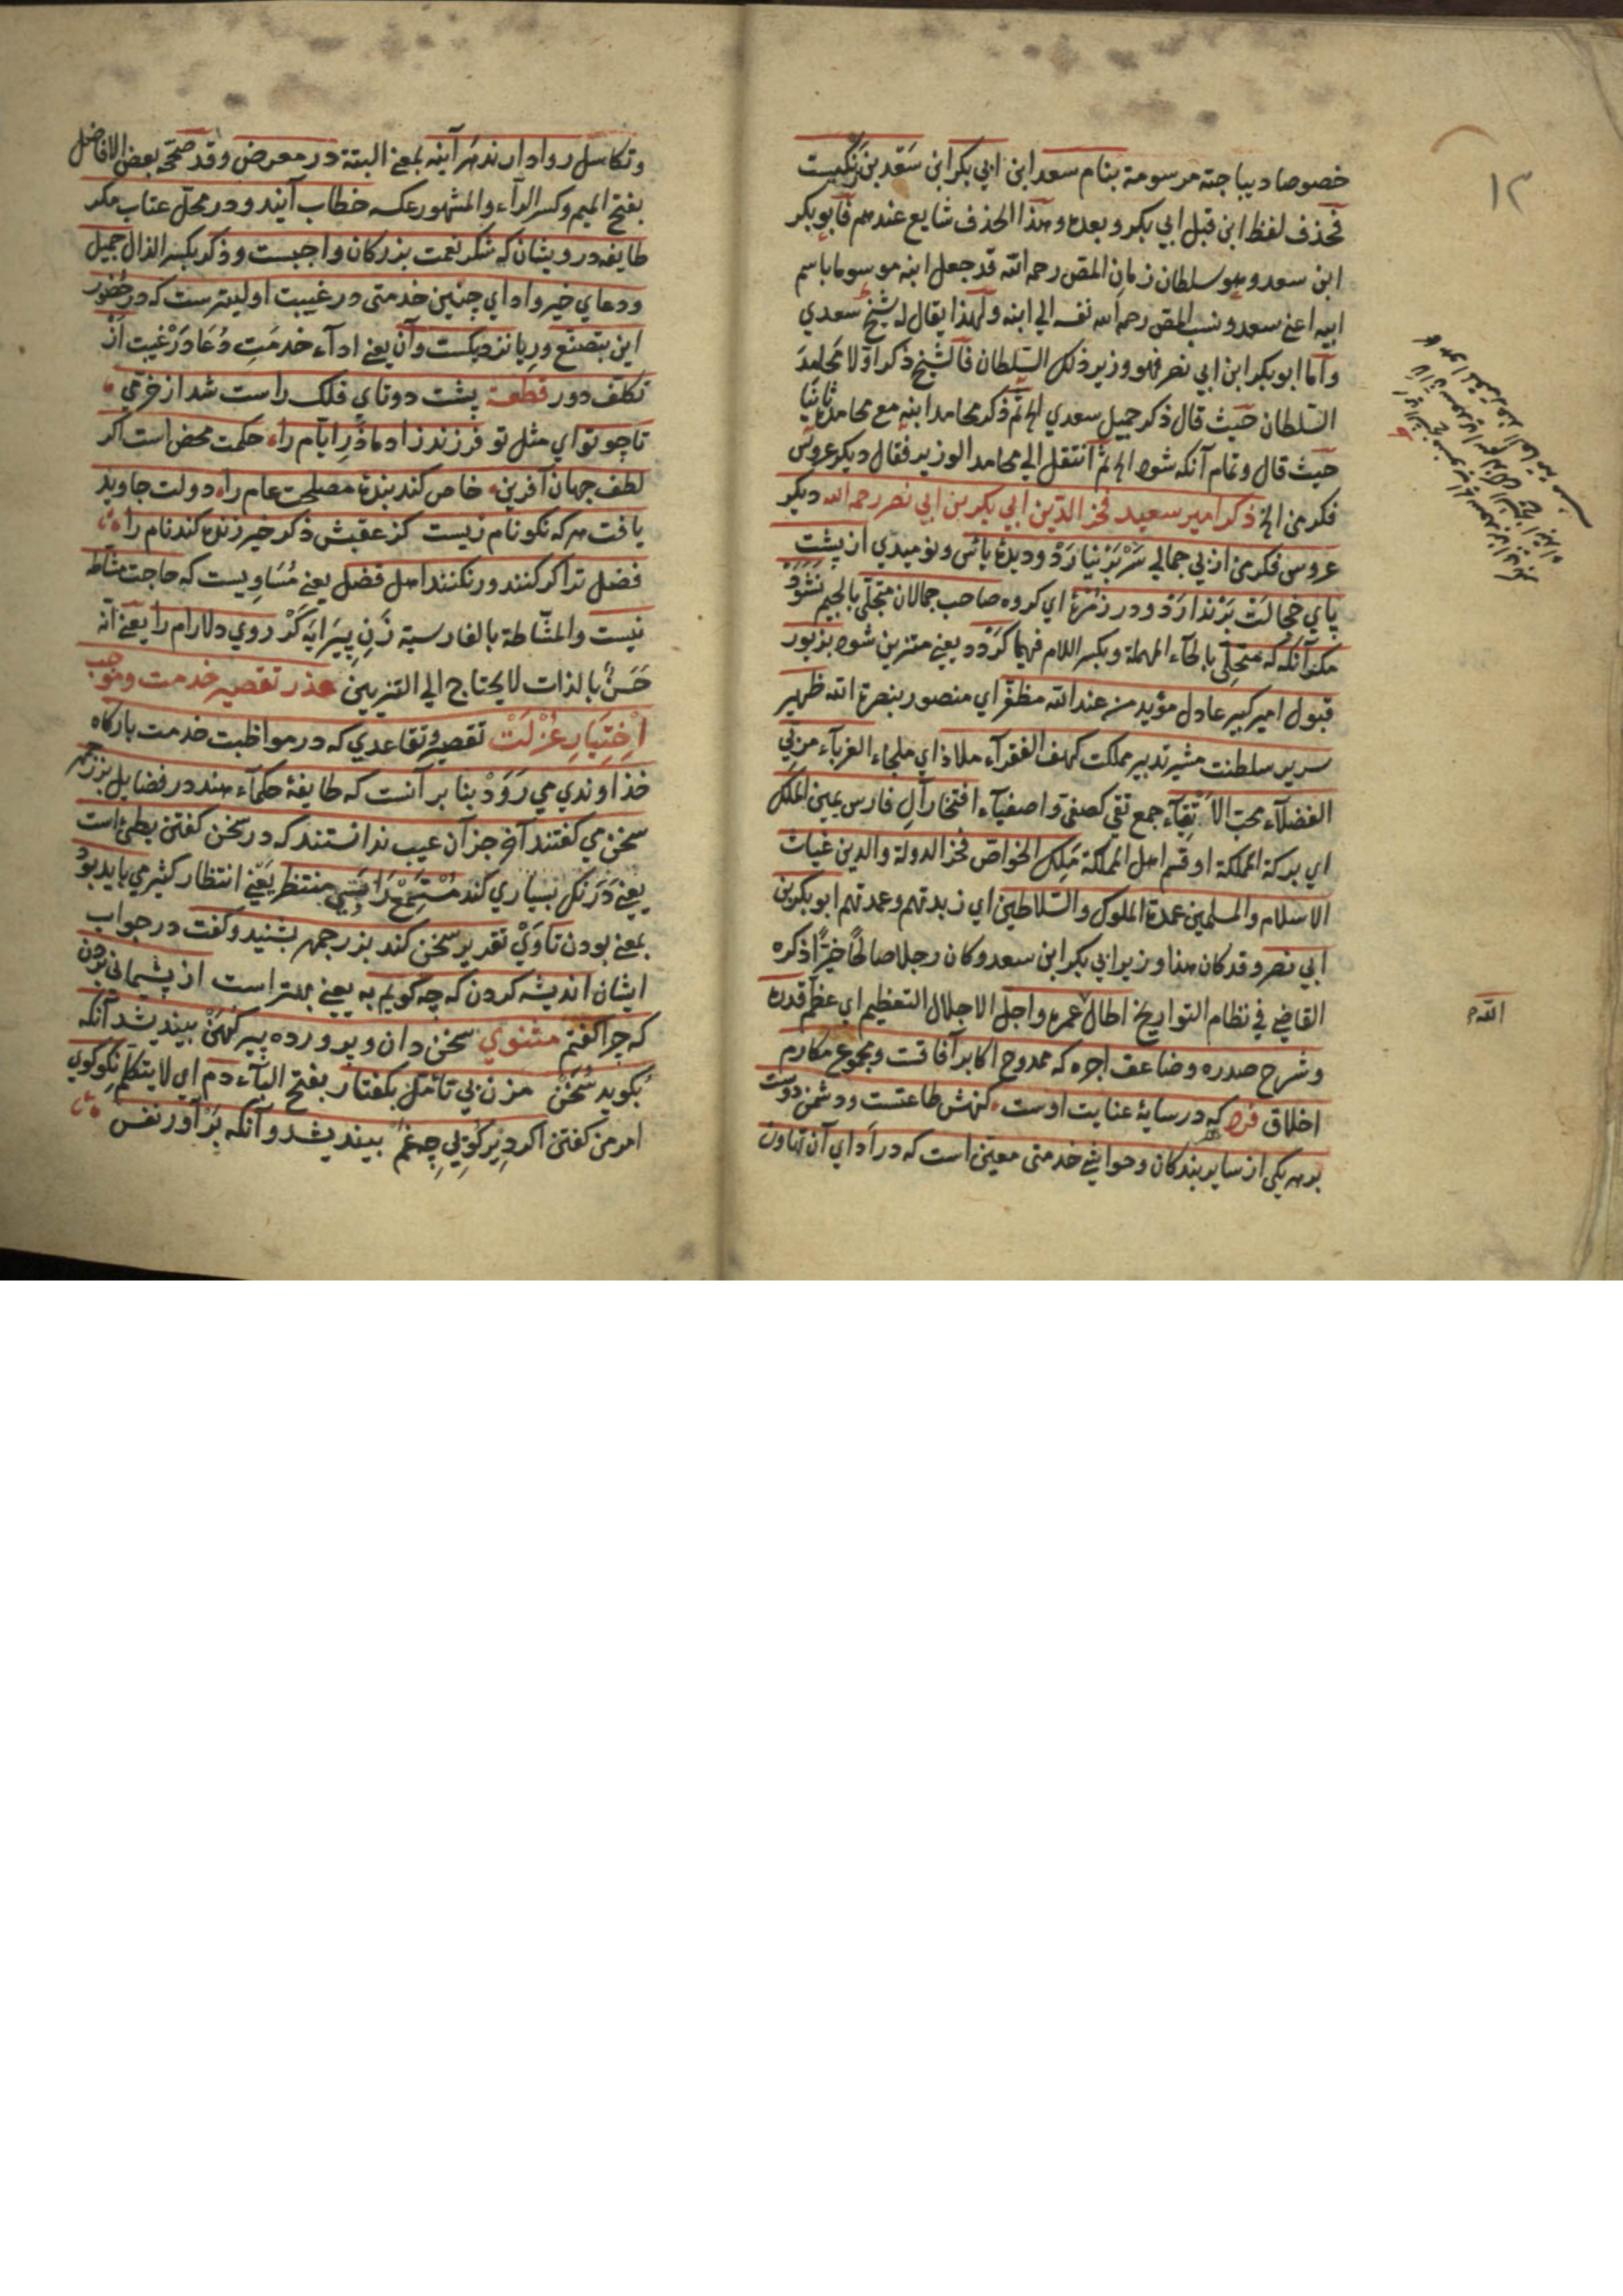 ١٣
خصوصا ديباجته مرسومة بنام سعد ابن ابي بكر ابن سَعْد بن زنكيست
فحذف لفظ ابن قبل ابي بكر وبعده وهذا الحذف شايع عندهم فابو بكر
ابن سعد وهو سلطان زمان المص رحمه الله قد جعل ابنه موسوما باسم
ابيه اعني سعد ونسب المص رحمه الله نفسه الي ابنه ولهذا يقال له شيخ سعدي
واما ابو بكر ابن ابي نصر فهو وزير ذلك السلطان فالشيخ ذكر اولا محامد
السلطان حيث قال ذكر جميل سعدي الخ ثم ذكر محامد ابنه مع محامده ثانيا
حيث قال وتمام آنكه شود الخ ثم انتقل الي محامد الوزير فقال ديكر عروس
فكر من الخ ذكر امير سعيد فخر الدين ابي بكر بن ابي نصر رحمه الله ديكر
عروس فكر من از بي جمالي سَرْ بَرْ نيارَدْ وديدهٔ يأس ونوميدي از پشت
پاي خجالت بَرْ ندارَدْ ودر زمرهٔ اي كروه صاحب جمالان متجلّي بالجيم نَشَوَدْ
مكر آنكه كه متحلّي بالحاء المهملة وبكسر اللام فيهما كَرْدَد يعني متزين شود بزيور
قبول امير كبير عادل مؤيد من عند الله مظفّر اي منصور بنصرة الله ظهير
سرير سلطنت مشير تدبير مملكت كهف الفقرآء ملاذ اي ملجاء الغربآء مربّي
الفضلآء محبّ الاتْقِيآء جمع تقي كصفي واصفيآء افتخار آلِ فارس يمين الملك
اي بركة المملكة او قسم اهل المملكة مَلِك الخواصّ فخر الدولة والدين غياث
الاسلام والمسلمين عمدة الملوك والسلاطين اي زبدتهم وعمدتهم ابو بكر بن
ابي نصر وقد كان هذا وزير ابي بكر ابن سعد وكان رجلا صالحًا خيرًا ذكره
القاضي في نظام التواريخ اطال عمره واجلّ الاجلال التعظيم اي عظم قدره
وشرح صدره وضاعف اجره كه ممدوح اكابر آفاقت ومجموع مكارم
اخلاق فرد كه در سايهٔ عنايت اوست كنهش طاعتست ودشمن دوست
بر هر يكي از ساير بندكان وحواشي خدمتي معيّن است كه در اداي آن تهاون
الله
وتكاسل روا دارند هر آينه بمعني البتة در معرض وقد صححه بعض الافاضل
بفتح الميم وكسر الرآء والمشهور عكسه خطاب آيند ودر محلّ عتاب مكر
طايفه درويشان كه شكر نعمت بزركان واجبست وذكر بكسر الذال جميل
ودعاي خير واداي چنين خدمتي در غيبت اوليترست كه در حُضور
اين بتصنع وريا نزديكست وآن يعني ادآء خدمَتِ دُعَا دَرْ غيبت از
تكلّف دور قطعه پشت دوتاي فلك راست شد از خرّمي
تا چو تو اي مثل تو فرزند زاد مادَرِ ايّام را حكمت محض است اكر
لطف جهان آفرين خاص كند بندهٔ مصلحت عام را دولت جاويد
يافت هر كه نكو نام زيست كز عقبش ذكر خير زنده كند نام را
فضل ترا كر كنند ورنكنند اهل فضل يعني مُسَاويست كه حاجت مشّاطه
نيست والمشّاطة بالفارسية زَنِ پيرَايَه كَرْ روي دلارام را يعني انّه
حَسَنٌ بالذات لا يحتاج الي التزيين عذر تقصير خدمت وموجب
اِخْتِيَارِ عُزْلَتْ تقصير وتقاعدي كه در مواظبت خدمت باركاه
خداوندي مي رَوَدْ بنا بر آنست كه طايفهٔ حكماء هند در فضايل بزرجمهر
سخن مي كفتند آخر جز آن عيب ندانستند كه در سخن كفتن بطئ است
يعني دَرَنك بسياري كند مُسْتَمِعْ رَا بَسي منتظر يعني انتظار كثير مي بايد بود
بمعني بودن تا وَيْ تقدير سخن كند بزرجمهر بشنيد وكفت در جواب
ايشان انديشه كردن كه چه كويم به يعني بهتر است از پشيماني خوردن
كه چرا كفتم مثنوي سخن دان وپرورده پير كهن بينديشد آنكه
بكويد سُخَنْ مزن بي تأمّل بكفتار بفتح البآء دم اي لا يتكلم نكو كوي
امر من كفتن اكر دير كُويي چِه غَمْ بينديش وآنكه بَرْ آور نفس